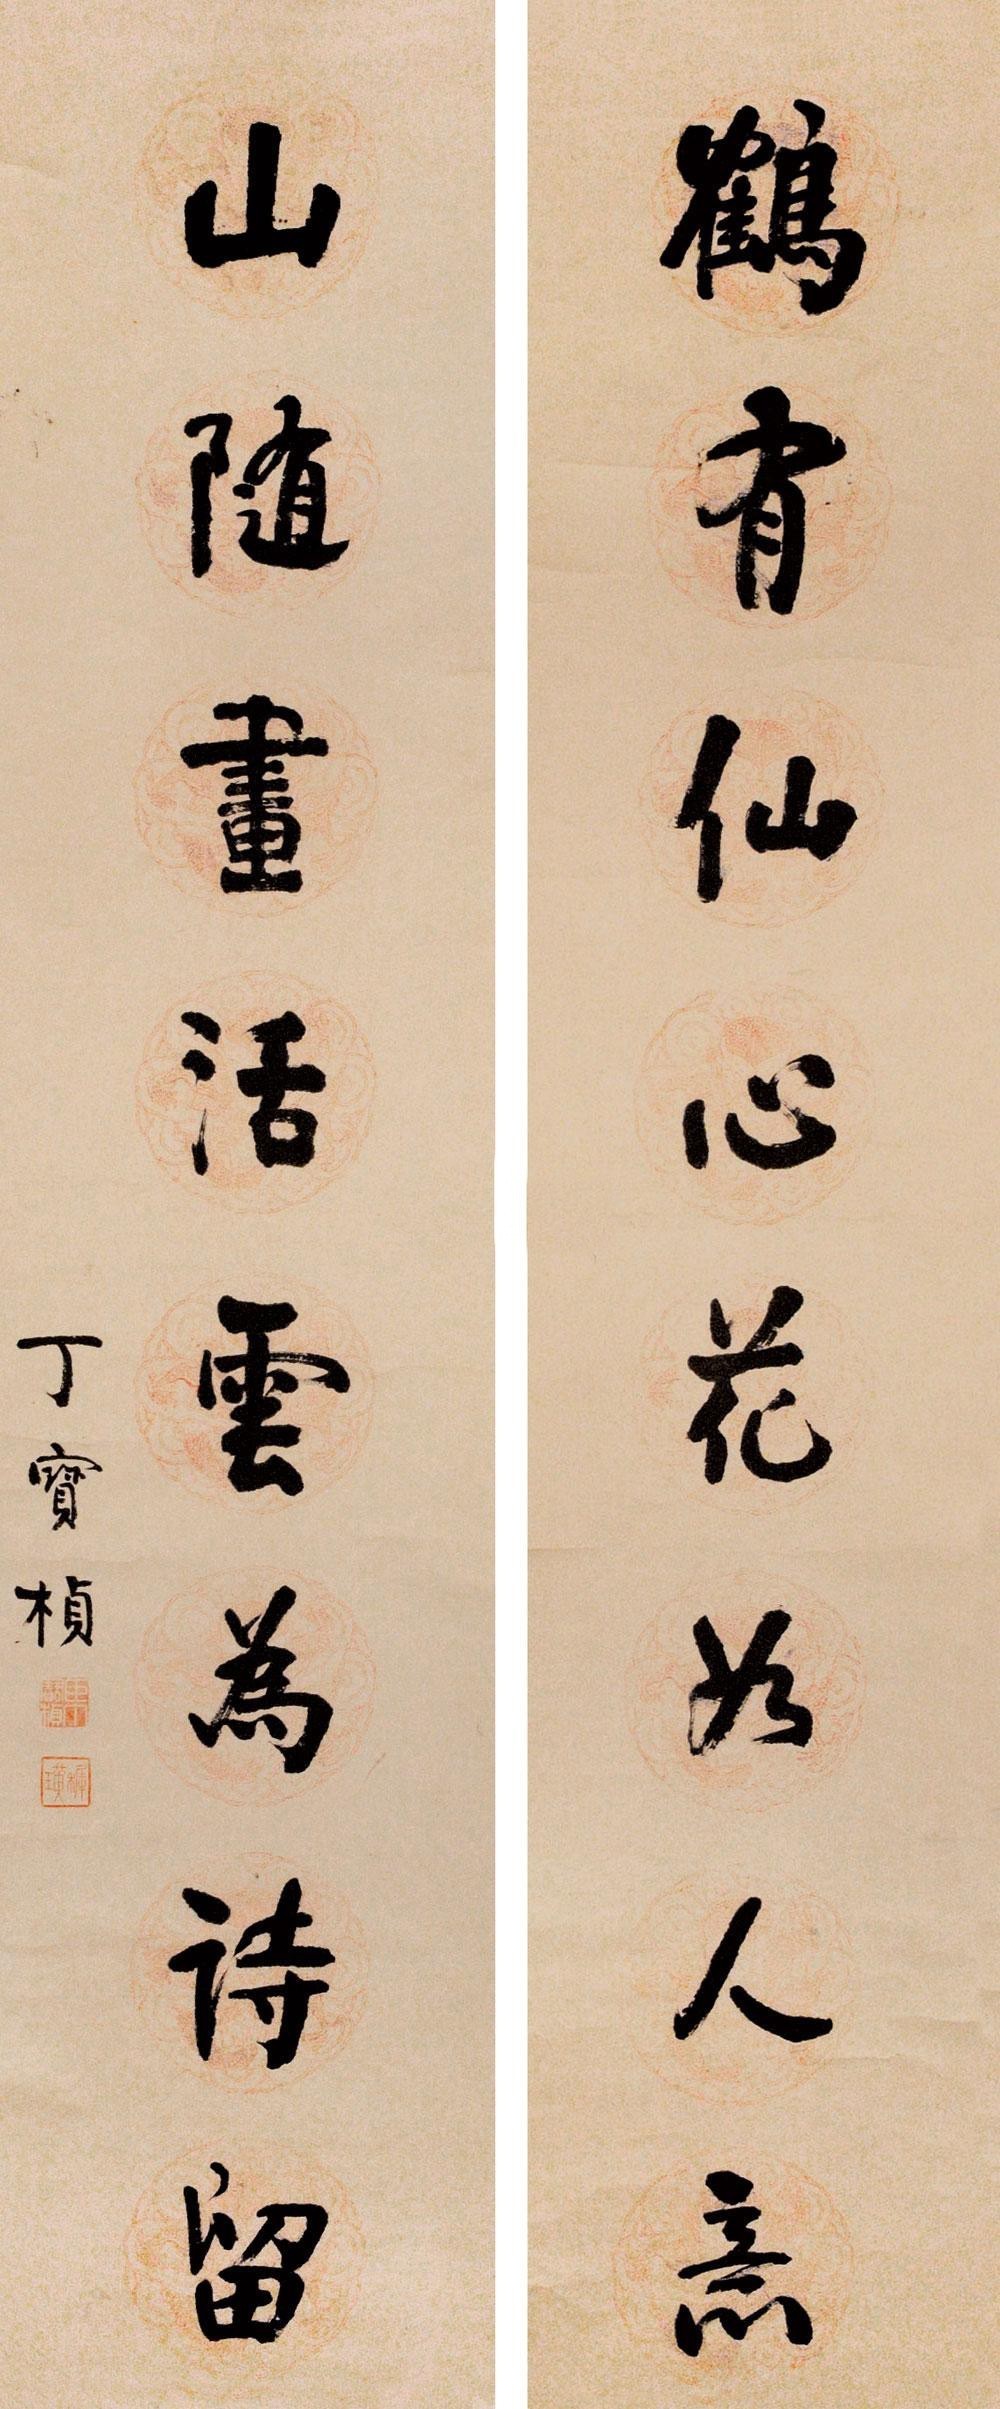 鶴有仙心花如人意
山隨畫活雲為詩留
丁寶楨